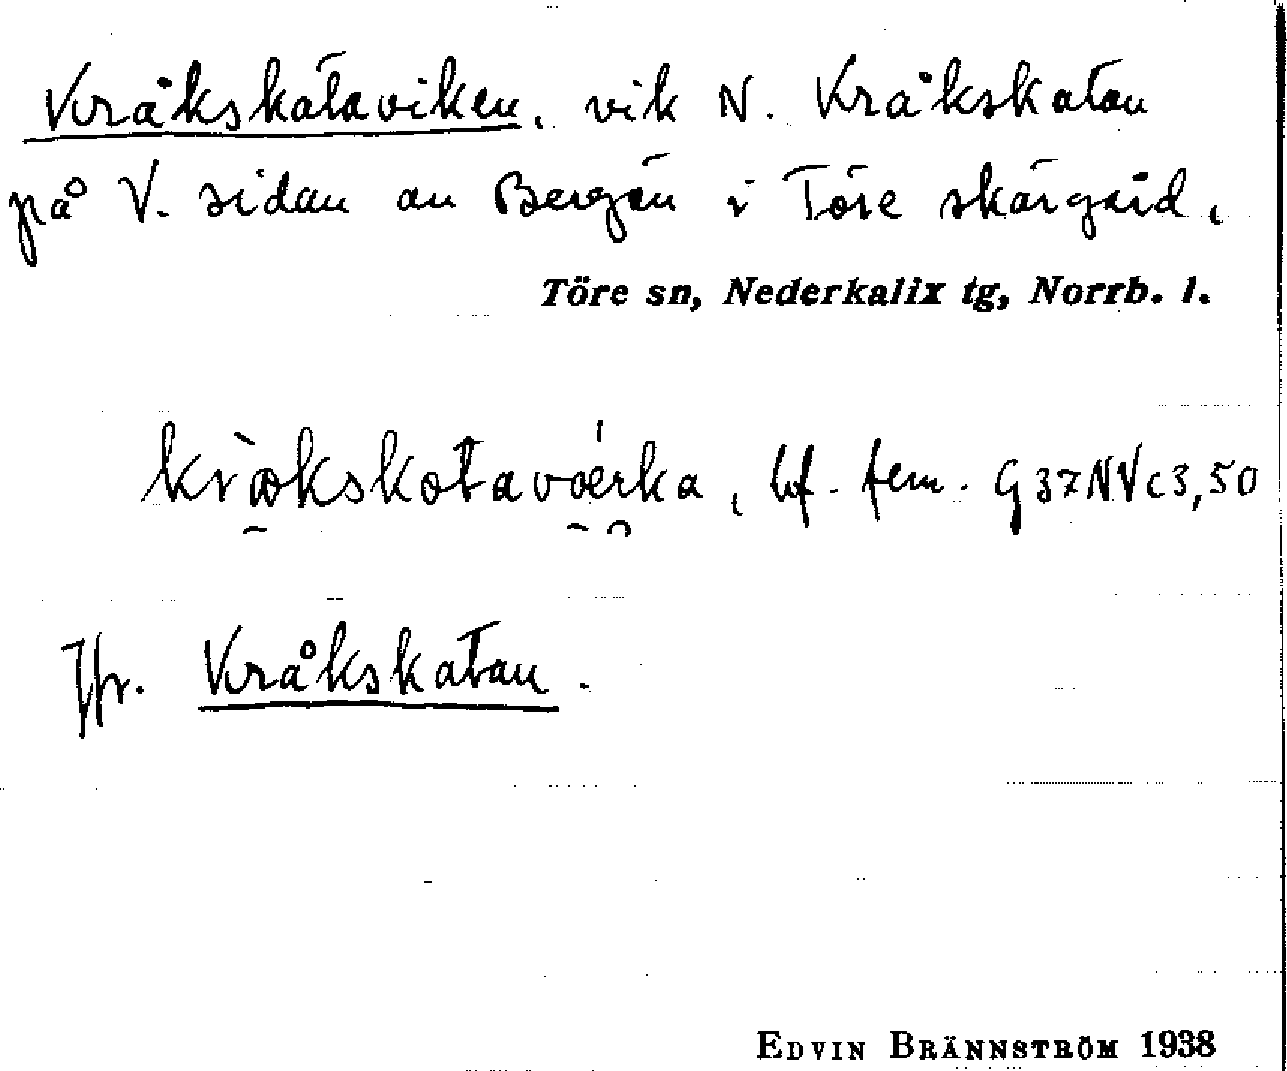 Kråkskataviken, vik N. Kråkskatan
på V. sidan av Bergön i Töre skärgård,
Töre sn, Nederkalix tg, Norrb. l.
bf. fem. G37NVc3,50
Jfr. Kråkskatan.
EDVIN BRÄNNSTRÖM 1938